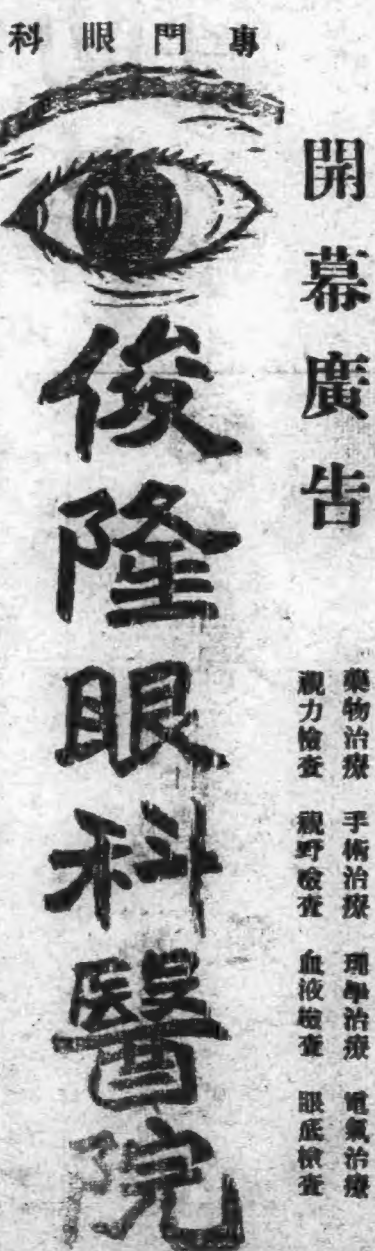 專門眼科
開幕廣告
藥物治療 手術治療 理學治療 電氣治療
視力檢查 視野檢查 血液檢查 眼底檢查
俊隆眼科醫院